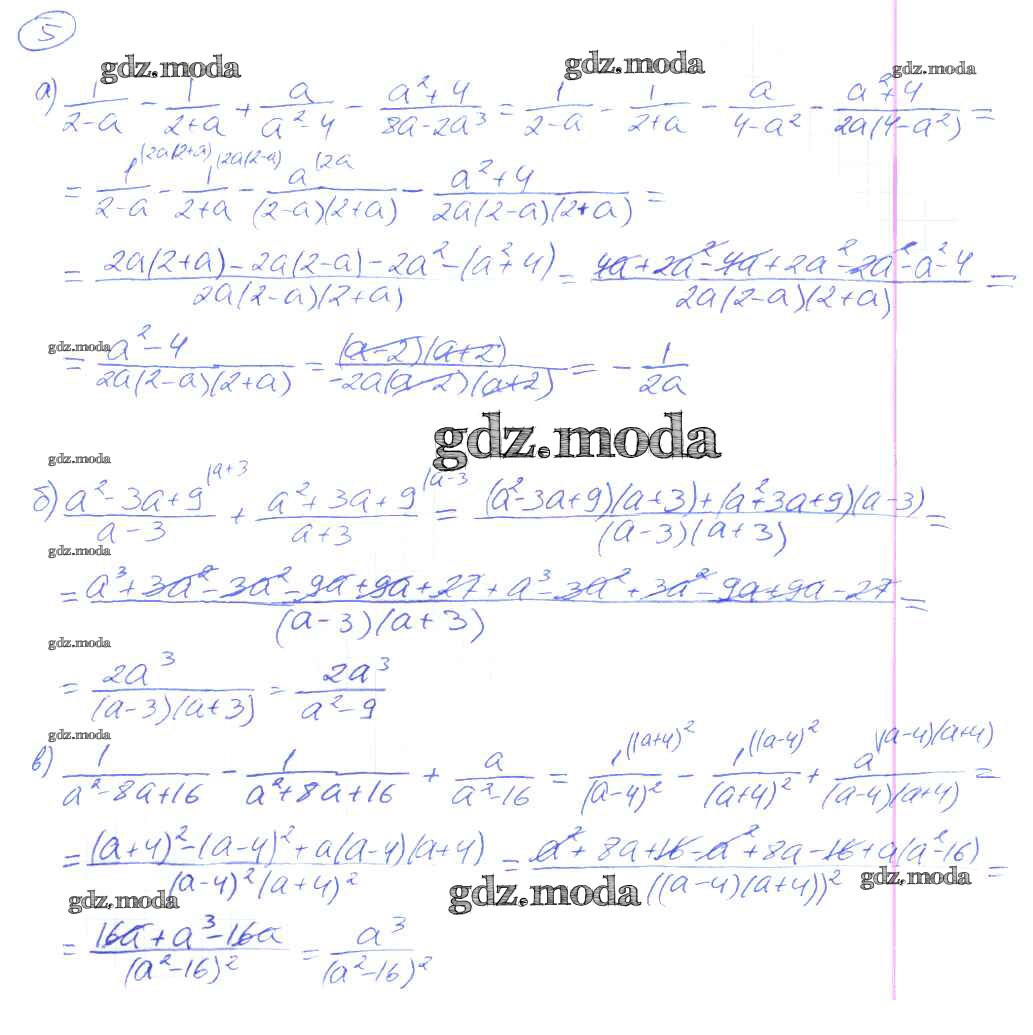 5
gdz.moda gdz.moda gdz.moda
а) 1/(2-a) - 1/(2+a) + a/(a²-4) - (a²+4)/(8a-2a³) = 1/(2-a) - 1/(2+a) - a/(4-a²) - (a²+4)/(2a(4-a²)) =
= 1^(2a(2+a)/(2-a) - 1^(2a(2-a)/(2+a) - a^(2a/((2-a)(2+a)) - (a²+4)/(2a(2-a)(2+a)) =
= (2a(2+a) - 2a(2-a) - 2a² - (a²+4))/(2a(2-a)(2+a)) = (4a + 2a² - 4a + 2a² - 2a² - a² - 4)/(2a(2-a)(2+a)) =
gdz.moda
= (a²-4)/(2a(2-a)(2+a)) = ((a-2)(a+2))/(-2a(a-2)(a+2)) = - 1/(2a)
gdz.moda
gdz.moda
б) (a²-3a+9)^(a+3/(a-3) + (a²+3a+9)^(a-3/(a+3) = ((a²-3a+9)(a+3) + (a²+3a+9)(a-3))/((a-3)(a+3)) =
gdz.moda
= (a³ + 3a² - 3a² - 9a + 9a + 27 + a³ - 3a² + 3a² - 9a + 9a - 27)/((a-3)(a+3)) =
gdz.moda
= 2a³/((a-3)(a+3)) = 2a³/(a²-9)
gdz.moda
в) 1/(a²-8a+16) - 1/(a²+8a+16) + a/(a²-16) = 1^((a+4)²/(a-4)² - 1^((a-4)²/(a+4)² + a^(a-4)(a+4)/((a-4)(a+4)) =
= ((a+4)² - (a-4)² + a(a-4)(a+4))/((a-4)²(a+4)²) = (a² + 8a + 16 - a² + 8a - 16 + a(a²-16))/((a-4)(a+4))² =
gdz.moda gdz.moda gdz.moda
= (16a + a³ - 16a)/(a²-16)² = a³/(a²-16)²